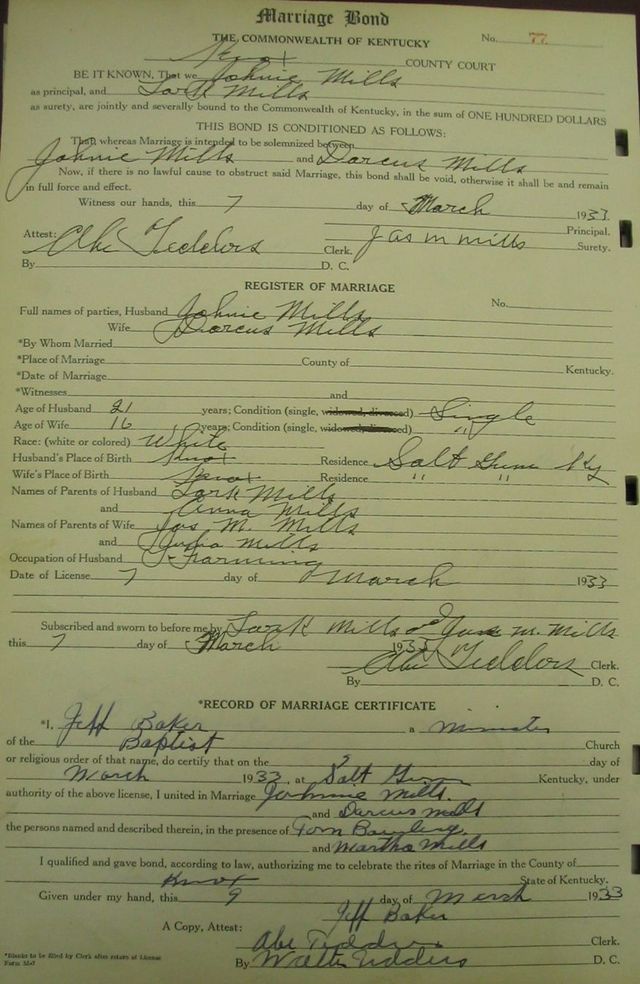 Marriage Bond
THE COMMONWEALTH OF KENTUCKY No. 77
Knox COUNTY COURT
BE IT KNOWN, That we Johnie Mills
as principal, and Lark Mills
as surety, are jointly and severally bound to the Commonwealth of Kentucky, in the sum of ONE HUNDRED DOLLARS
THIS BOND IS CONDITIONED AS FOLLOWS:
That whereas Marriage is intended to be solemnized between
Johnie Mills and Darcus Mills
Now, if there is no lawful cause to obstruct said Marriage, this bond shall be void, otherwise it shall be and remain
in full force and effect.
Witness our hands, this 7 day of March 1933.
Principal.
Attest: Abe Tedders Clerk. Jas m mills Surety.
By D. C.
REGISTER OF MARRIAGE
Full names of parties, Husband Johnie Mills No.
Wife Darcus Mills
*By Whom Married
*Place of Marriage County of Kentucky.
*Date of Marriage
*Witnesses and
Age of Husband 21 years; Condition (single, widowed, divorced) Single
Age of Wife 16 years; Condition (single, widowed, divorced) "
Race: (white or colored) White
Husband's Place of Birth Knox Residence Salt Gum Ky
Wife's Place of Birth Knox Residence " "
Names of Parents of Husband Lark Mills
and Anna Mills
Names of Parents of Wife Jas M. Mills
and Julia Mills
Occupation of Husband Farming
Date of License 7 day of March 1933
Subscribed and sworn to before me by Lark Mills and M. Mills
this 7 day of March 1933
Abe Tedders Clerk.
By D. C.
*RECORD OF MARRIAGE CERTIFICATE
*I, Jeff Baker a minister
of the Baptist Church
or religious order of that name, do certify that on the day of
March 1933, at Salt Gum Kentucky, under
authority of the above license, I united in Marriage Johnnie Mills.
and Darcus Mills
the persons named and described therein, in the presence of Tom Bowling.
and Martha Mills
I qualified and gave bond, according to law, authorizing me to celebrate the rites of Marriage in the County of
Knox State of Kentucky.
Given under my hand, this 9 day of March 1933
Jeff Baker
A Copy, Attest:
Abe Tedders Clerk.
By Walter Tedders D. C.
*Blanks to be filled by Clerk after return of License